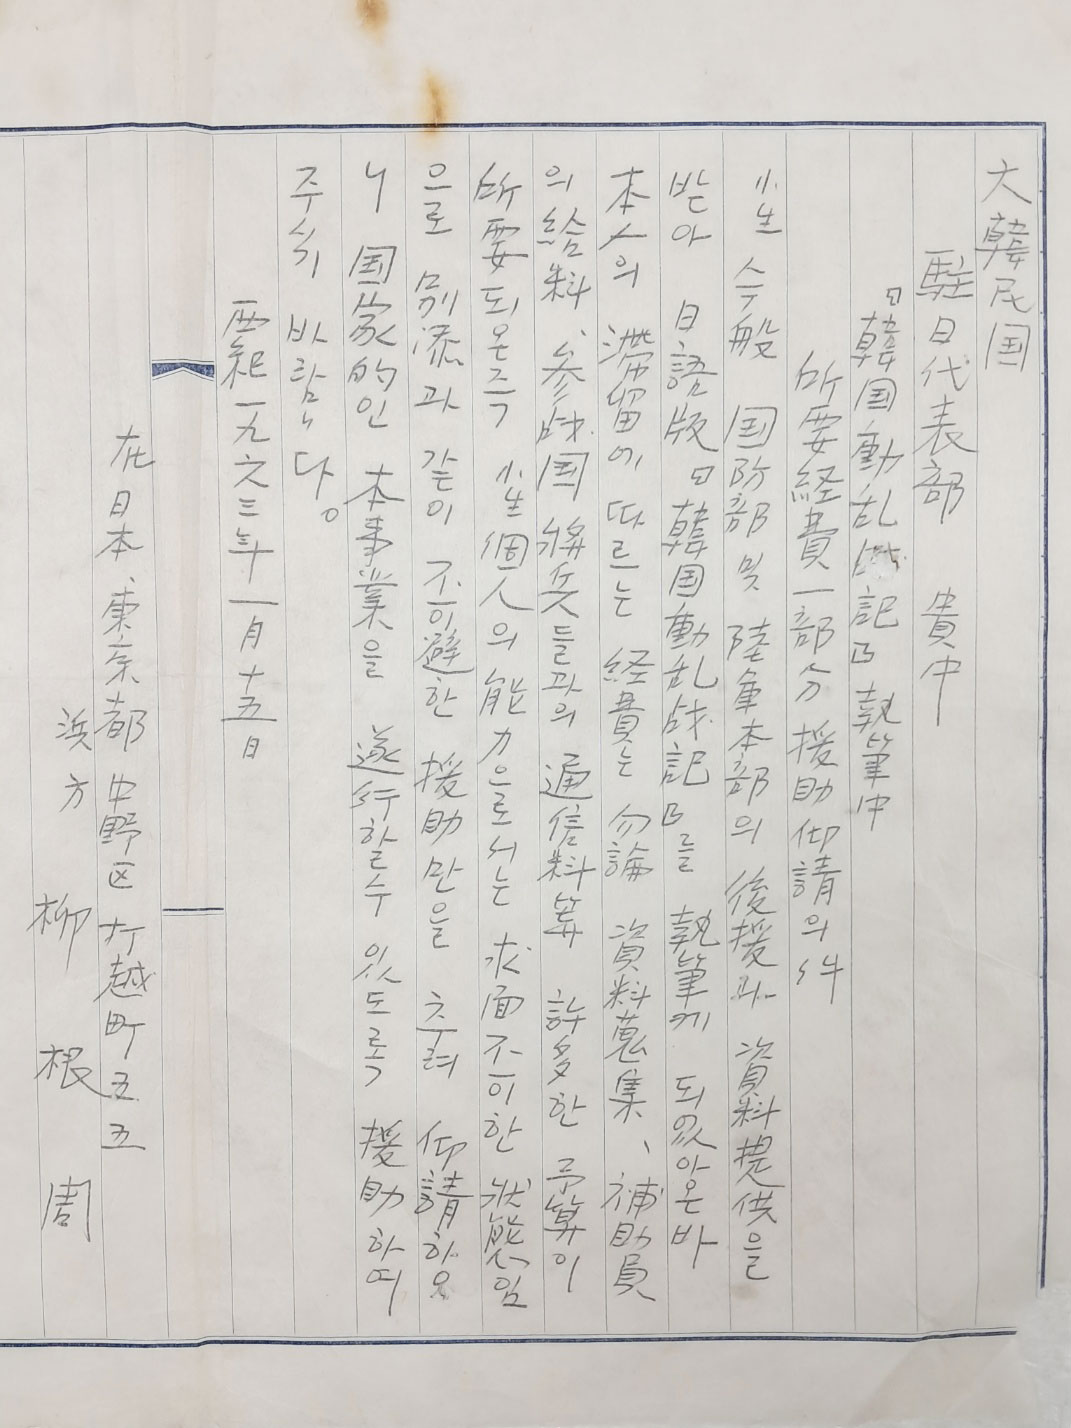 大韓民国
駐日代表部 貴中
『韓国動乱戦記』執筆中
所要経費一部分 援助 仰請의 件
小生 今般 国防部 및 陸軍本部의 後援과 資料提供을
받아 日語版『韓国動乱战記』를 執筆케 되었아온바
本人의 滞留에 따르는 経費는 勿論 資料蒐集、補助員
의 給料、参战国 將兵들과의 通信料等 許多한 予算이
所要되온즉 小生個人의 能力으로서는 求面不이한 狀態임
으로 別添과 같이 不이避한 援助만을 추려 仰請하오
니 国家的인 本事業을 遂行할수 있도록 援助하여
주시기 바랍니다。
西紀一九六三年一月十五日
在日本、東京都 中野区 打越町 五五
浜方
柳 根 周